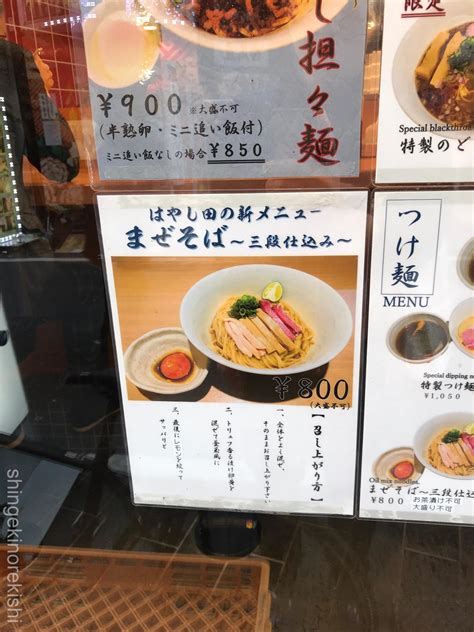 し担々麺
¥900 ※大盛不可
(半熟卵・ミニ追い飯付)
ミニ追い飯なしの場合¥850
限定
Special blackthro
特製のど
はやし田の新メニュー
まぜそば～三段仕込み～
¥800
(大盛不可)
【召し上がり方】
一、全体をよく混ぜ、
そのままお召し上がり下さい
二、トリュフ香る漬け卵黄を
混ぜて釜玉風に
三、最後にレモンを絞って
サッパリと
つけ麺
MENU
Special dipping n
特製つけ麺
¥1,050
Oil mix noodles.
まぜそば～三段仕込
¥800 お茶漬け不可
大盛り不可
shingekinorekishi